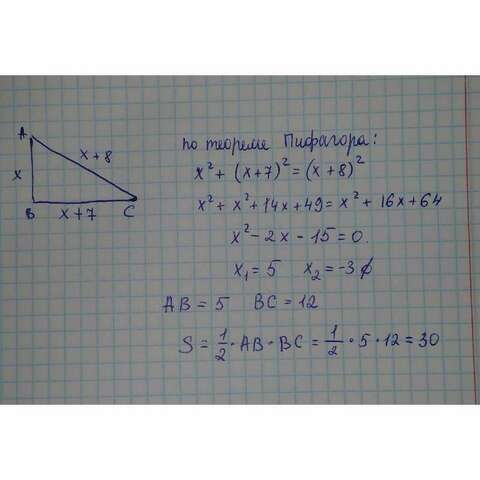 A
x + 8
x
B
x + 7
C
по теореме Пифагора:
x² + (x + 7)² = (x + 8)²
x² + x² + 14x + 49 = x² + 16x + 64
x² - 2x - 15 = 0.
x₁ = 5 x₂ = -3 ∅
AB = 5 BC = 12
S = 1/2 · AB · BC = 1/2 · 5 · 12 = 30